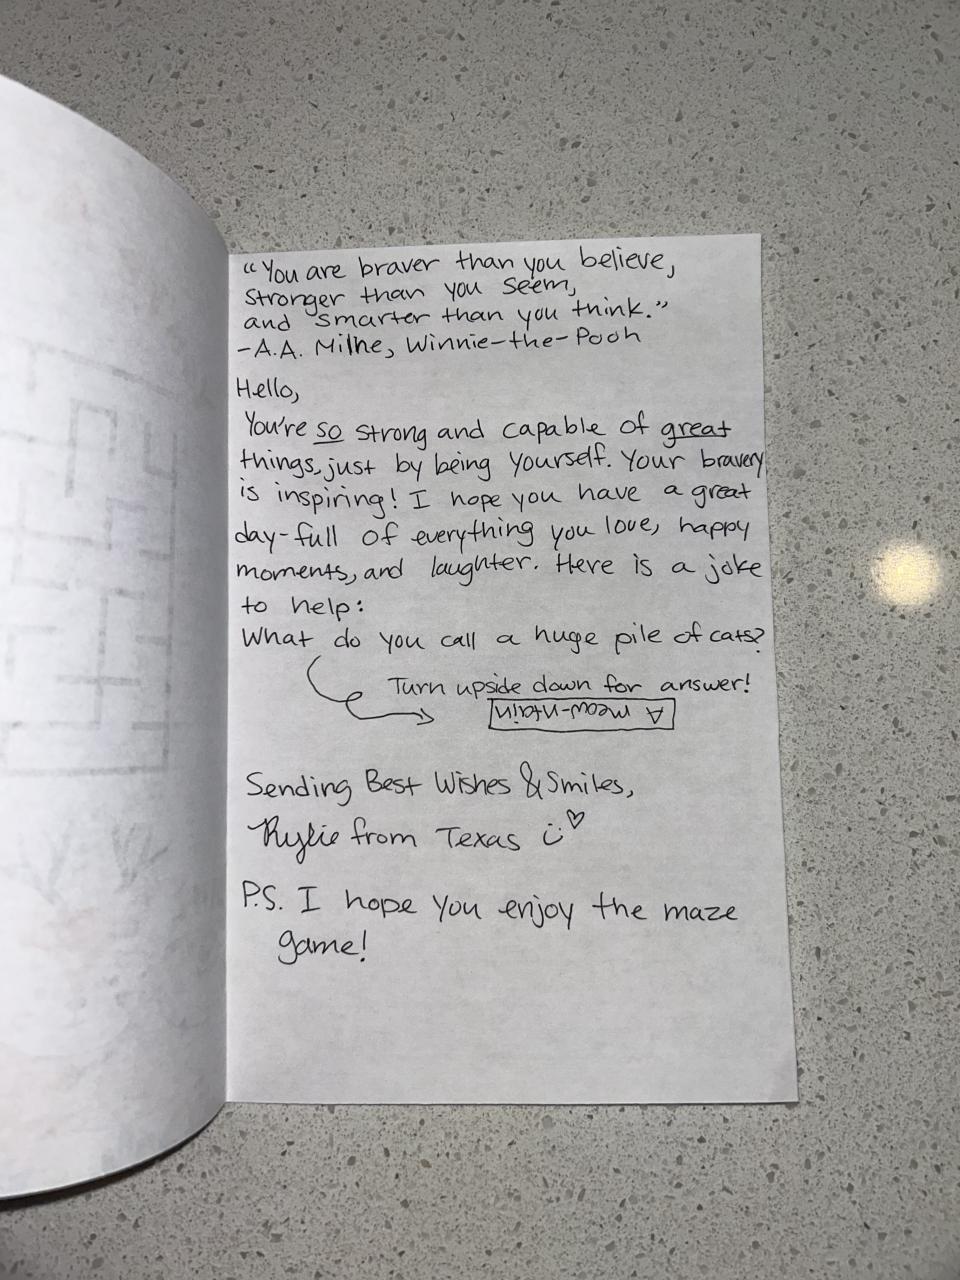 “You are braver than you believe,
stronger than you seem,
and smarter than you think.”
-A.A. Milne, Winnie-the-Pooh
Hello,
You're so strong and capable of great
things, just by being yourself. Your bravery
is inspiring! I hope you have a great
day-full of everything you love, happy
moments, and laughter. Here is a joke
to help:
What do you call a huge pile of cats?
Turn upside down for answer!
A meow-ntain
Sending Best Wishes & Smiles,
Rylie from Texas
P.S. I hope you enjoy the maze
game!